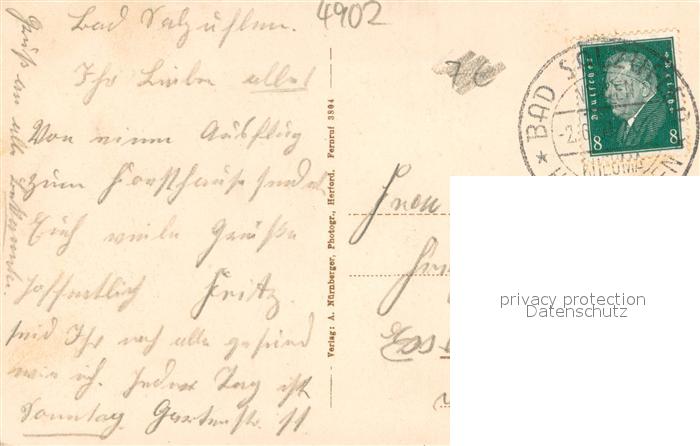 4902
Bad Salzuflen.
Ihr Lieben alle!
Von einem Ausflug
zum Forsthause sendet
Euch viele Grüße
hoffentlich Fritz.
seid Ihr noch alle gesund
wie ich. Jeder Tag ist
Sonntag. Gartenstr. 11
Gruß an alle Bekannten.
Verlag: A. Nürnberger, Photogr., Herford. Fernruf 3804
Deutsches Reich
8 8
BAD SALZUFLEN
Frau
privacy protection
Datenschutz